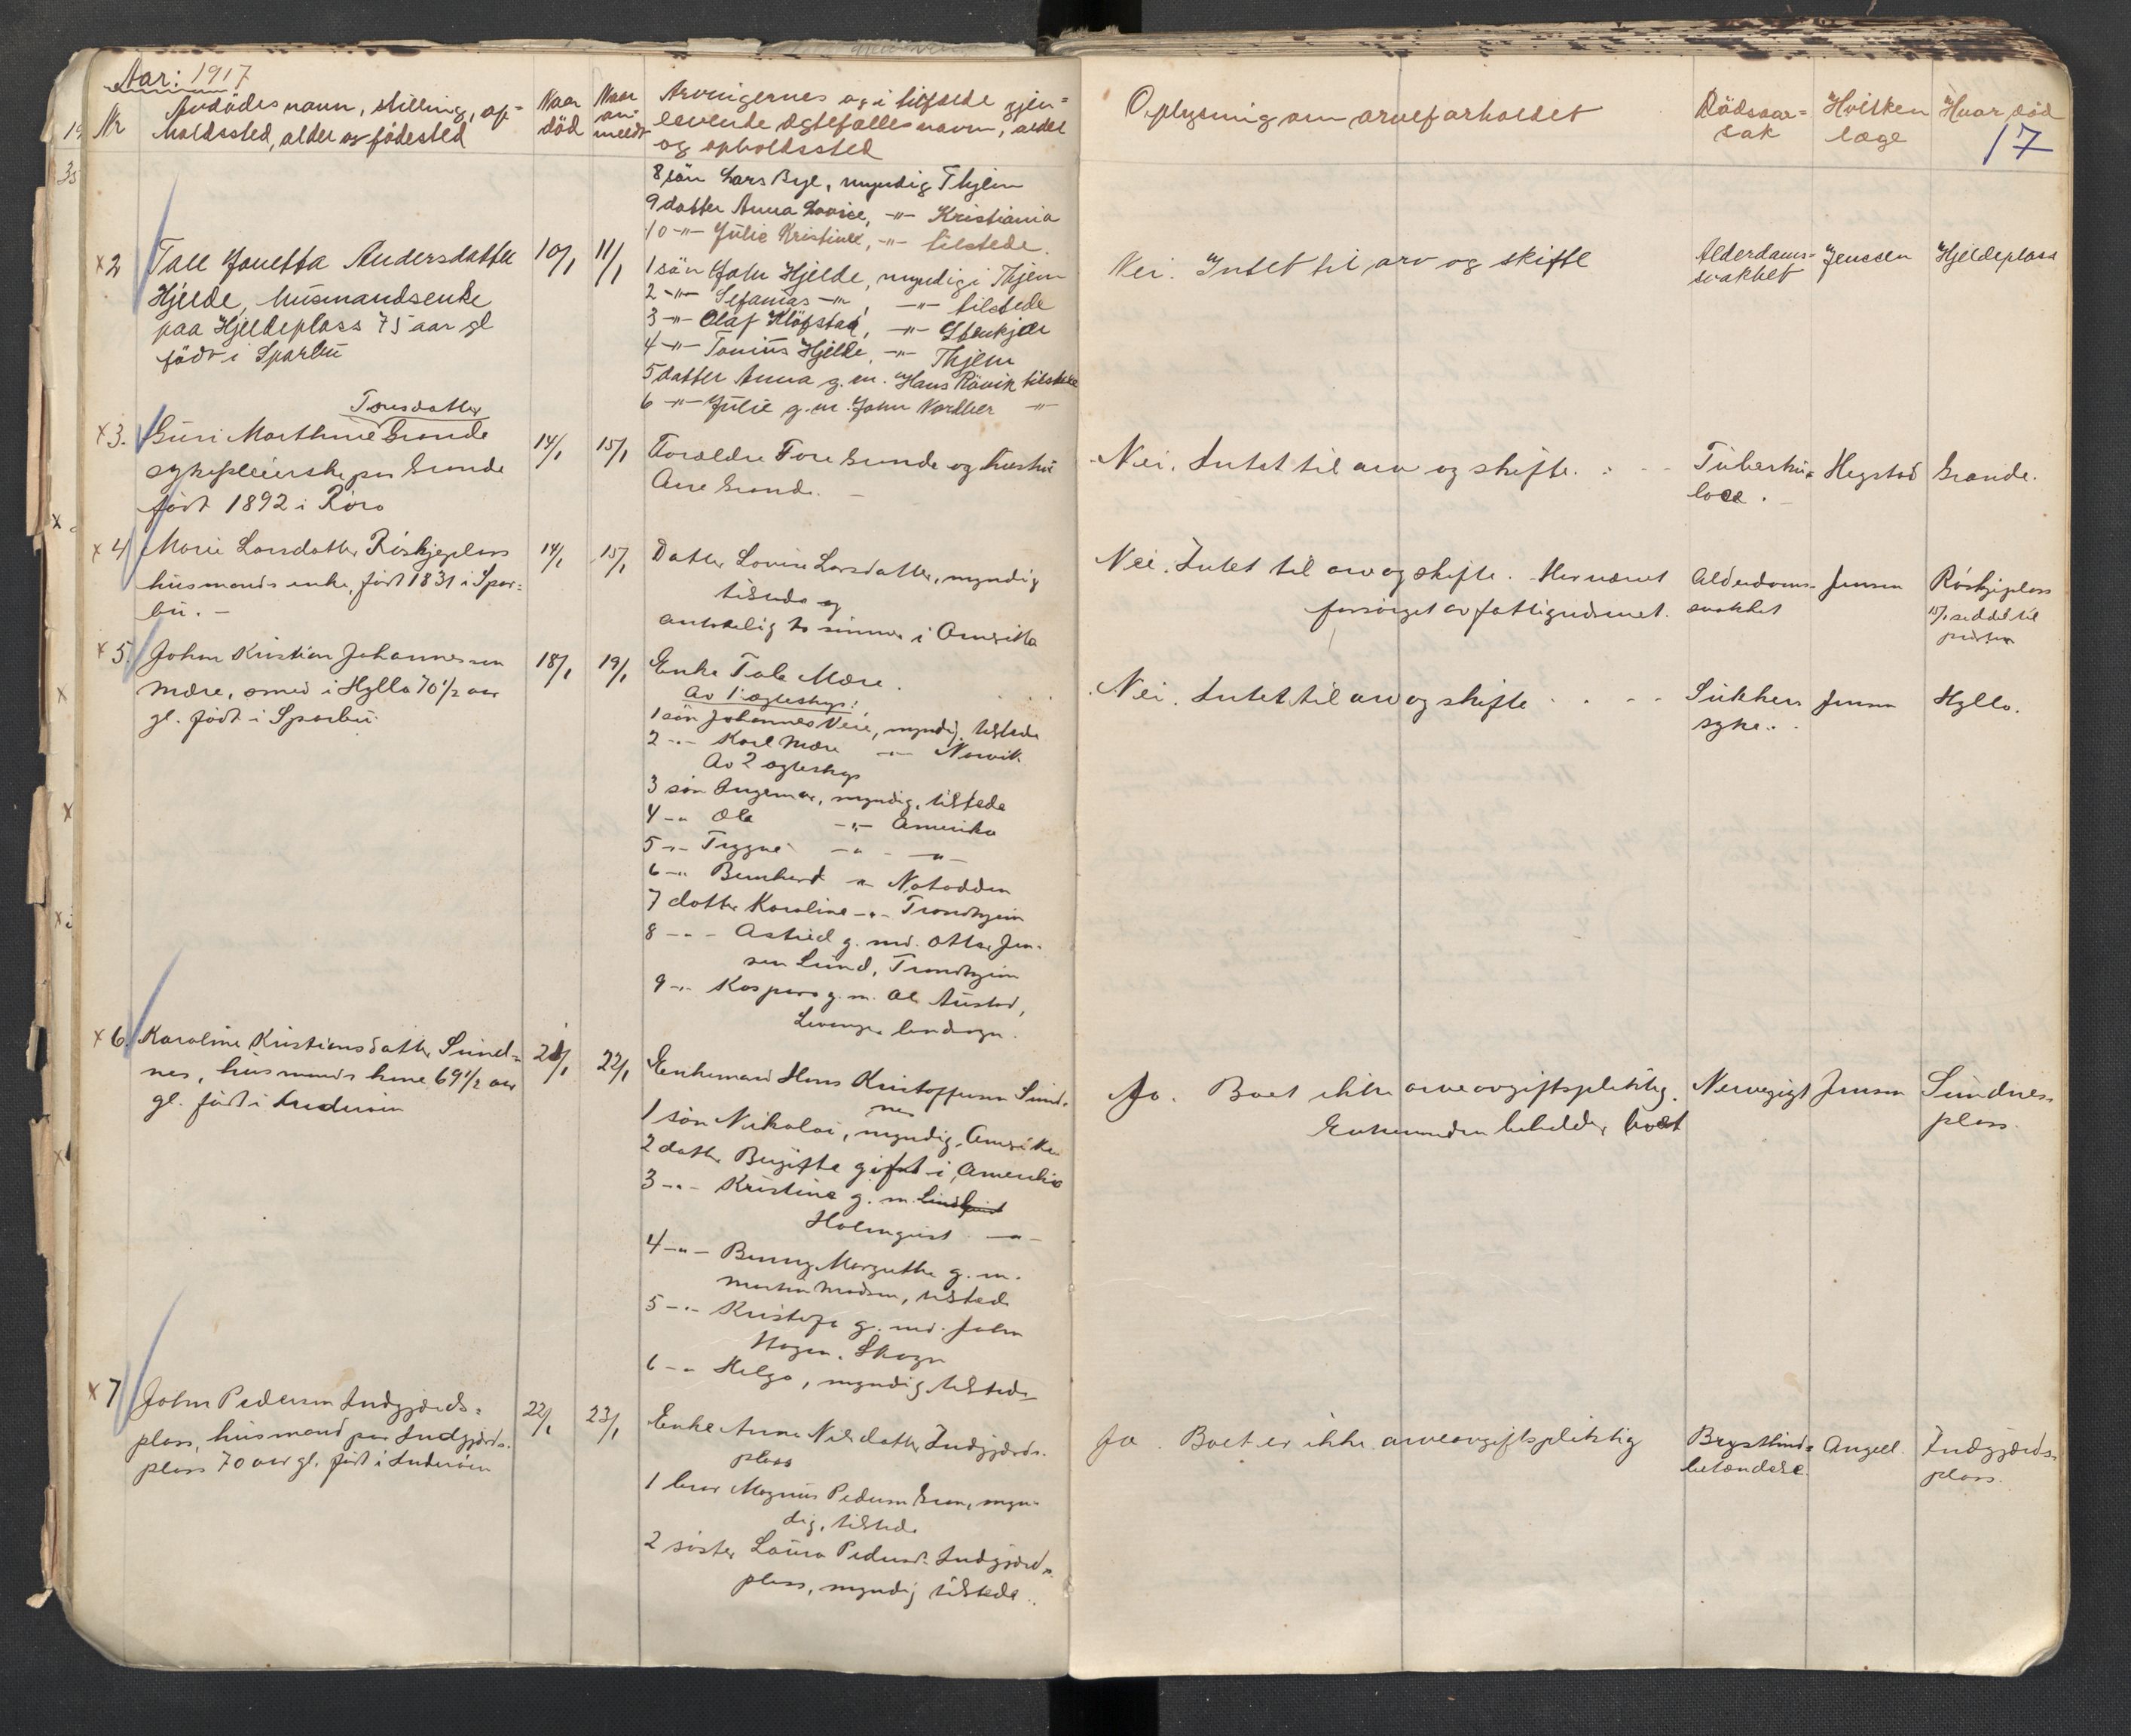 Aar: 1917
Nr
Avdödes navn, stilling, op=
holdssted, alder og födested
Naar
död
Naar
an=
meldt
Arvingernes og i tilfælde gjen=
levende ægtefælles navn, alder
og opholdssted
Oplysning om arveforholdet
Dödsaar=
sak
Hvilken
læge
Hvor död
17
8 sön Lars Bye, myndig Thjem
9 datter Anna Lovise, -"- Kristiania
10 -"- Julie Kristine, -"- tilstede.
x2 Tale Jonetta Andersdatter
Hjelde, husmandsenke
paa Hjeldeplass 75 aar gl
födt i Sparbu
10/1
11/1
1 sön John Hjelde, myndig i Thjem
2 -"- Sefanias -"-, -"- tilstede
3 -"- Olaf Klöfstad, -"- Stenkjær
4 -"- Tonius Hjelde, -"- Thjem
5 datter Anna g.m. Hans Rövik tilstede
6 -"- Julie g.m. John Nordber -"-
Nei. Intet til arv og skifte
Alderdoms=
svakhet
Jenssen
Hjeldeplass
Toresdatter
x3. Guri Marthine Grande
sykepleierske paa Grande
födt 1892 i Röra
14/1
15/1
Foreldre Tore Grande og hustru
Ane Grande. -
Nei. Intet til arv og skifte.
Tuberku=
lose.
Hegstad
Grande.
x4 Marie Larsdatter Röskjeplass
husmands enke, födt 1831 i Spar=
bu. -
14/1
15/1
Datter Lovise Larsdatter, myndig
tilstede og
antakelig to sönner i Amerika
Nei. Intet til arv og skifte. Har været
forsörget av fattigvæsenet.
Alderdoms-
svakhet
Jensen
Röskjeplass
15/1 seddel til
presten
x5. Johan Kristian Johannessen
Mære, smed i Hylla 70 1/2 aar
gl. födt i Sparbu.
18/1
19/1
Enke Tale Mære.
Av 1. egteskap:
1 sön Johannes Veie, myndig, tilstede
2 -"- Karl Mære -"- Narvik
Av 2 egteskap
3 sön Ingemar, myndig, tilstede
4 -"- Ole -"- Amerika
5 -"- Trygve -"- -"-
6 -"- Bernhard -"- Notodden
7 datter Karoline -"- Trondhjem
8 -"- Astrid g. m. Otto Jen-
sen Lund, Trondhjem
9 -"- Kaspara g. m. Ole Austad,
Levanger landsogn.
Nei. Intet til arv og skifte
Sukker
syke.
Jensen
Hylla.
x6. Karoline Kristiansdatter Sund=
nes, husmands kone 69 1/2 aar
gl. födt i Inderöen
21/1
22/1
Enkemand Hans Kristoffersen Sund-
nes
1 sön Nikolai, myndig, Amerika
2 datter Bergitte gift i Amerika
3 -"- Kristine g. m. Lindkvist
Holmqvist -"-
4 -"- Benny Margrethe g. m.
Martin Madsen, tilstede
5 -"- Kristofa g. m. John
Hagen. Skogn
6 -"- Helga, myndig tilstede
Ja. Boet ikke arveavgiftspliktig.
Enkemanden beholder boet
Nervegigt
Jensen
Sundnes-
plass.
x7 John Pedersen Indgjærds=
plass, husmand paa Indgjærds-
plass 70 aar gl. födt i Inderöen
22/1
23/1
Enke Anne Nilsdatter Indgjærds-
plass
1 bror Magnus Pedersen Gran, myn-
dig, tilstede
2 söster Laura Pedersd. Indgjærds-
plass, myndig tilstede.
Ja. Boet er ikke arveavgiftspliktig
Brysthinde=
betændelse.
Angell.
Indgjærds-
plass.